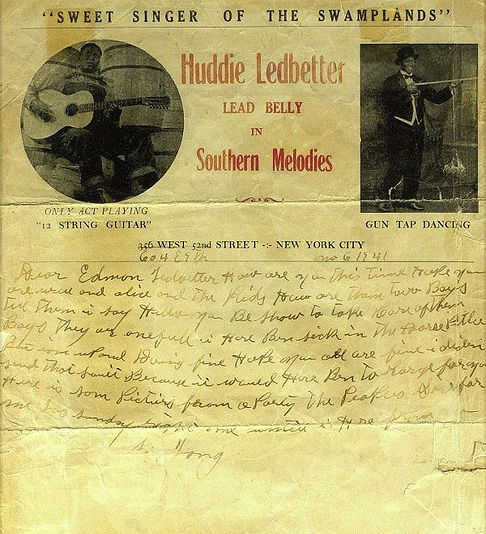 "SWEET SINGER OF THE SWAMPLANDS"
Huddie Ledbetter
LEAD BELLY
IN
Southern Melodies
ONLY ACT PLAYING
"12 STRING GUITAR"
GUN TAP DANCING
356 WEST 52nd STREET -:- NEW YORK CITY
604 E 9th nov 6 1941
Dear Edmon Ledbetter How are you this time Hope you
are well and alive and the Kids How are them two Boys
tell them i say Hello you Be show to take care of them
Boys They are onefull i Have Ben sick in the Horspitle
But i'm up and Doing fine Hope you all are fine i didn
send that suit Because it would Have Ben to large for you
Here is som Pictirs from a Party The People
sunday one until i Here from